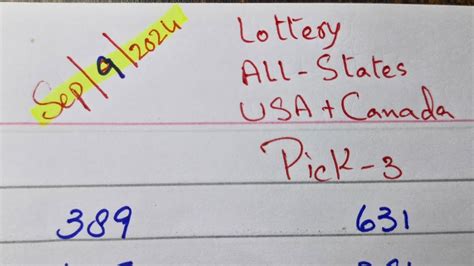 Sep/9/2024
Lottery
ALL-States
USA+Canada
Pick-3
389 631